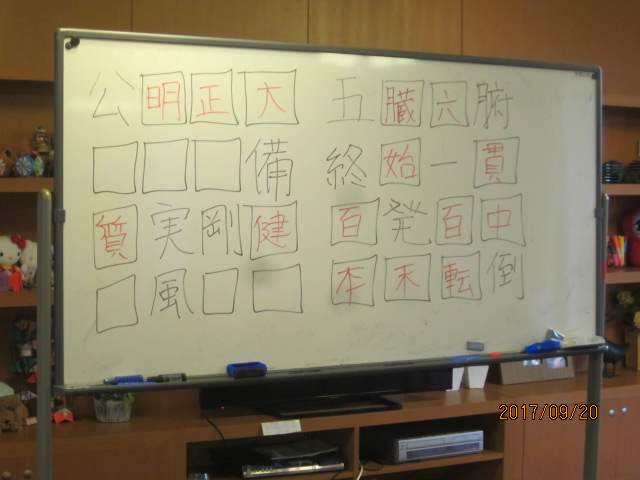 公明正大 五臓六腑
□□□備 終始一貫
質実剛健 百発百中
□風□□ 本末転倒
2017/09/20